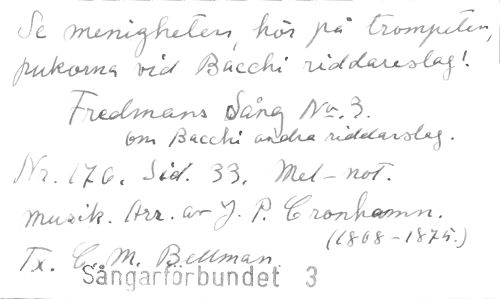 Se menigheten, hör på trompeten,
pukorna vid Bacchi riddareslag!
Fredmans Sång No. 3.
om Bacchi andra riddarslag.
Nr. 176. Sid. 33. Mel-not.
musik. Arr. av J. P. Cronhamn.
(1808-1875.)
Tx. C. M. Bellman.
Sångarförbundet 3